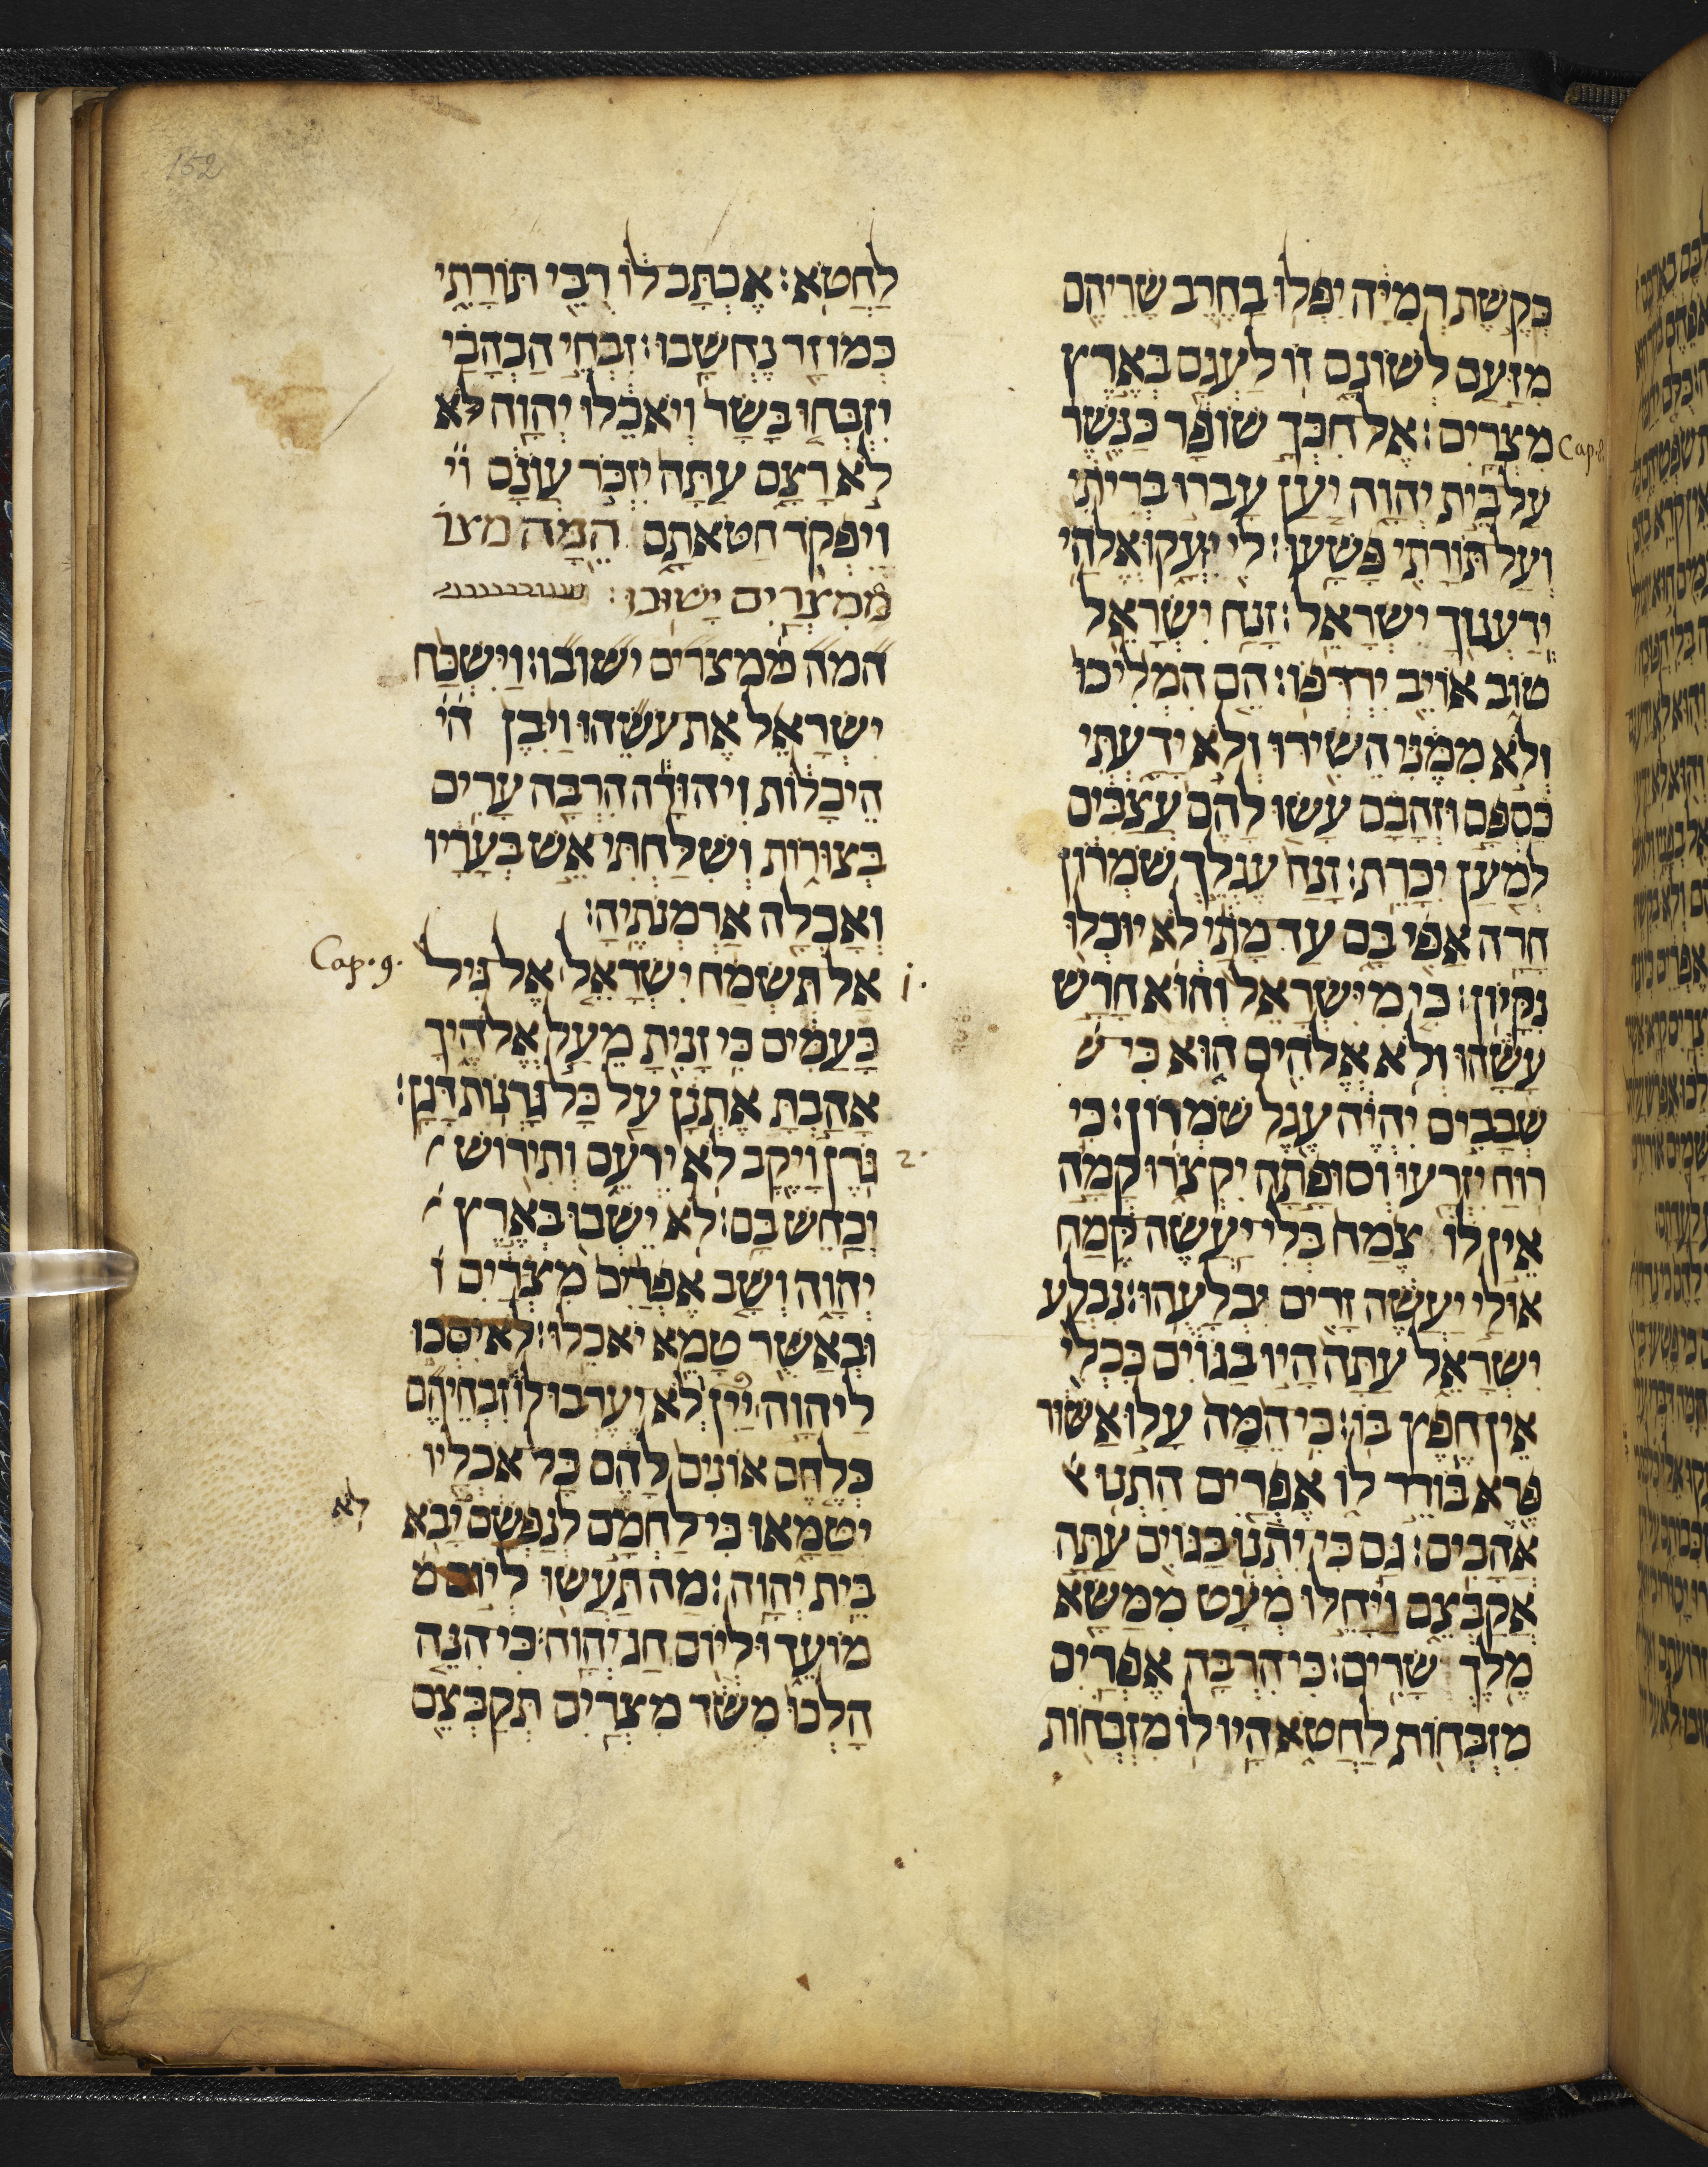 152
כקשת רמיה יפלו בחרב שריהם
מזעם לשונם זו לעגם בארץ
מצרים׃ אל חכך שופר כנשר
Cap.8.
על בית יהוה יען עברו בריתי
ועל תורתי פשעו׃ לי יזעקו אלהי
ידענוך ישראל׃ זנח ישראל
טוב אויב ירדפו׃ הם המליכו
ולא ממני השירו ולא ידעתי
כספם וזהבם עשו להם עצבים
למען יכרת׃ זנח עגלך שמרון
חרה אפי בם עד מתי לא יוכלו
נקיון׃ כי מישראל והוא חרש
עשהו ולא אלהים הוא כי ש
שבבים יהיה עגל שמרון׃ כי
רוח יזרעו וסופתה יקצרו קמה
אין לו צמח בלי יעשה קמח
אולי יעשה זרים יבלעהו׃ נבלע
ישראל עתה היו בגוים ככלי
אין חפץ בו׃ כי המה עלו אשור
פרא בודד לו אפרים התנו
אהבים׃ גם כי יתנו בגוים עתה
אקבצם ויחלו מעט ממשא
מלך שרים׃ כי הרבה אפרים
מזבחות לחטא היו לו מזבחות
לחטא׃ אכתב לו רבי תורתי
כמו זר נחשבו׃ זבחי הבהבי
יזבחו בשר ויאכלו יהוה לא
לא רצם עתה יזכר עונם וי
ויפקד חטאתם המה מצו
ממצרים ישובו׃
המה ממצרים ישובו׃ וישכח
ישראל את עשהו ויבן הי
היכלות ויהודה הרבה ערים
בצורות ושלחתי אש בעריו
ואכלה ארמנתיה׃
Cap.9.
1. אל תשמח ישראל אל גיל
בעמים כי זנית מעל אלהיך
אהבת אתנן על כל גרנות דגן׃
2. גרן ויקב לא ירעם ותירוש
יכחש בם׃ לא ישבו בארץ
יהוה ושב אפרים מצרים ו
ובאשור טמא יאכלו׃ לא יסכו
ליהוה יין ולא יערבו לו זבחיהם
כלחם אונים להם כל אכליו
יטמאו כי לחמם לנפשם יבא
לא
בית יהוה׃ מה תעשו ליום מ
מועד וליום חג יהוה׃ כי הנה
הלכו משד מצרים תקבצם